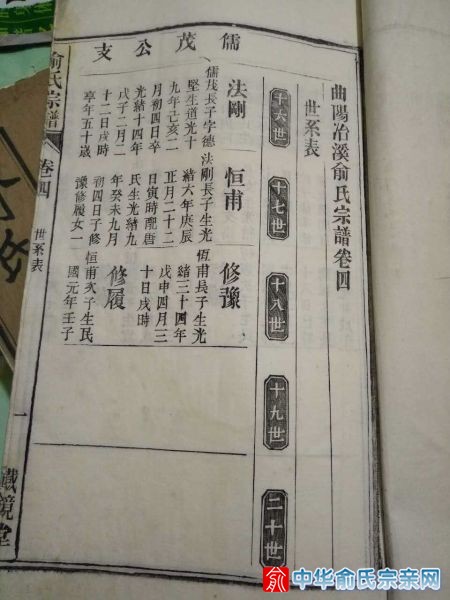 曲陽冶溪俞氏宗譜卷四
世系表
十六世
十七世
十八世
十九世
二十世
儒茂公支
法剛
儒茂長子字德
堅生道光十
九年己亥二
月初四日卒
光緒十四年
戊子二月二
十二日戌時
享年五十歲
恒甫
法剛長子生光
緒六年庚辰
正月二十二
日寅時配唐
氏生光緒九
年癸未九月
初四日子修
豫修履女一
修豫
恆甫長子生光
緒三十四年
戊申四月三
十日戌時
修履
恒甫次子生民
國元年壬子
俞氏宗譜
卷四
世系表
一
藏鏡堂
俞 中华俞氏宗亲网